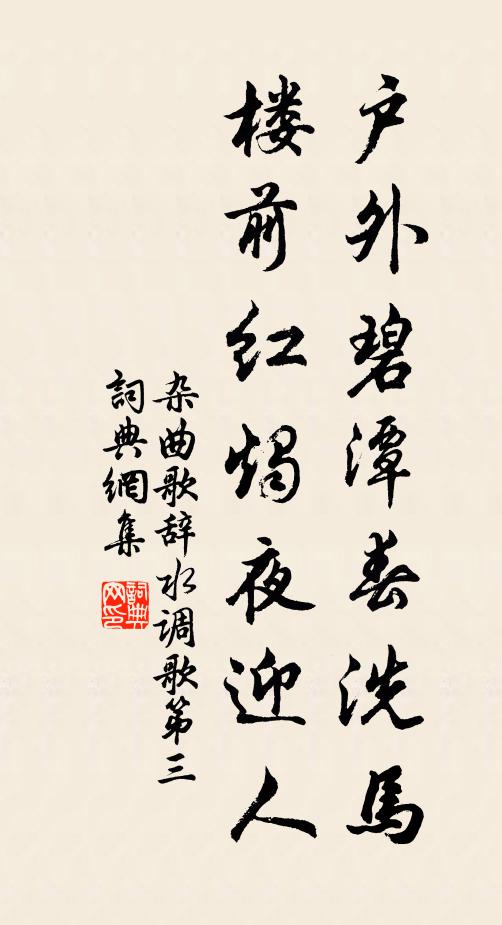 户外碧潭春洗馬
楼前红烛夜迎人
杂曲歌辞水调歌第三
詞典網集
詞典网印